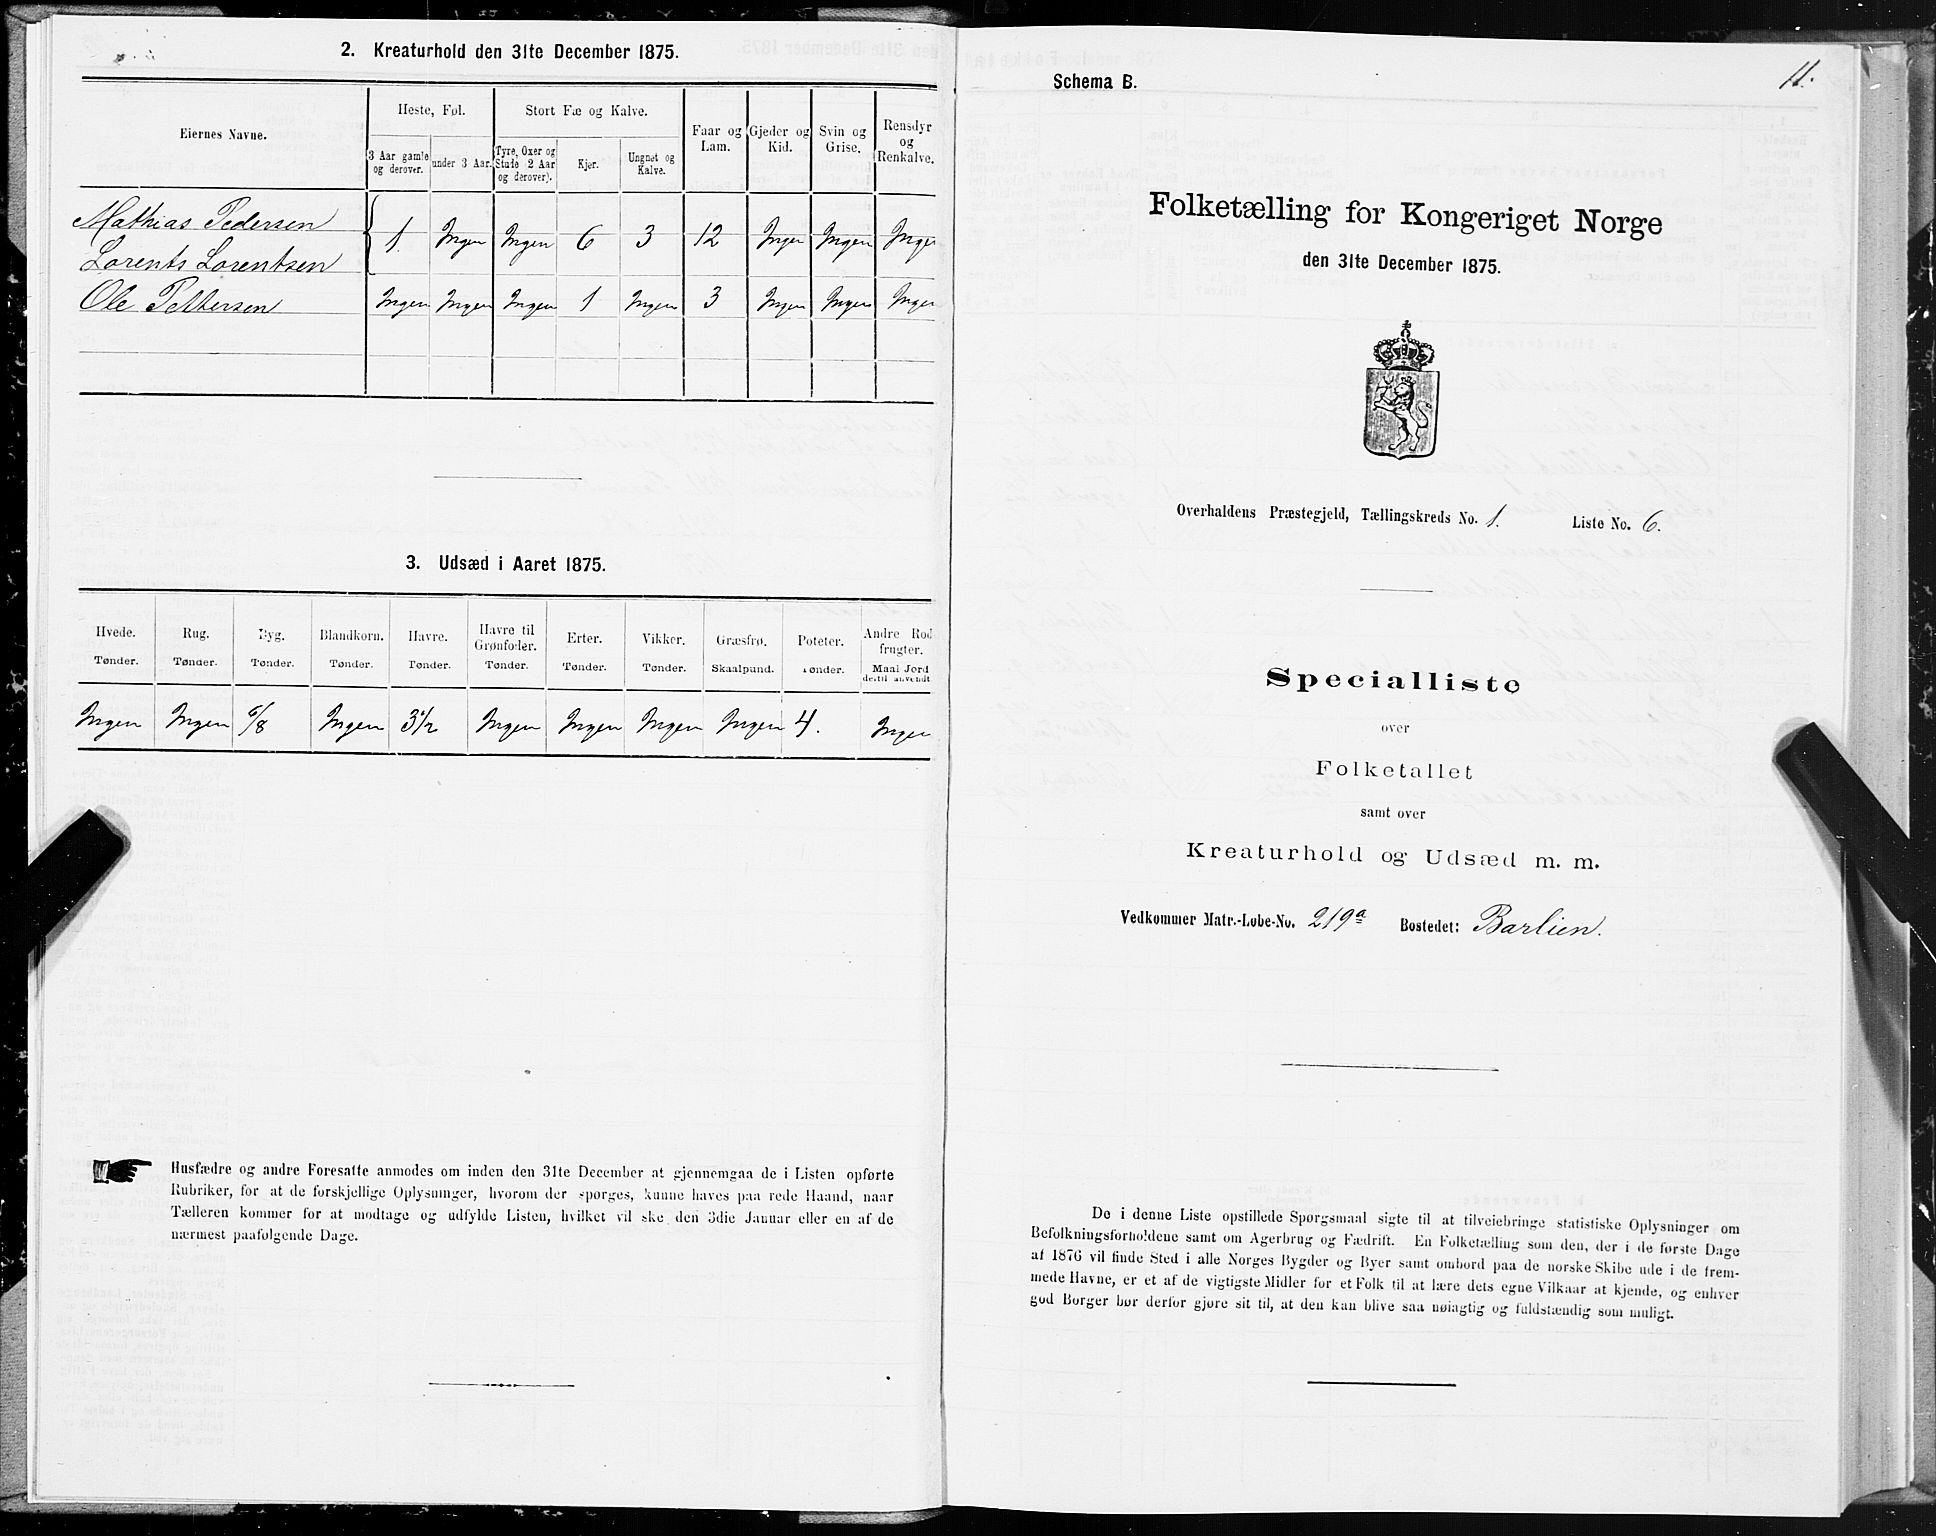 2. Kreaturhold den 31te December 1875.
Eiernes Navne.
Heste, Føl.
Stort Fæ og Kalve.
Faar og Lam.
Gjeder og Kid.
Svin og Grise.
Rensdyr og Renkalve.
3 Aar gamle og derover.
under 3 Aar.
Tyre, Oxer og Stude (2 Aar og derover).
Kjer.
Ungnøt og Kalve.
Mathias Pedersen
Lorents Lorentsen
1. Ingen Ingen 6 3 12 Ingen Ingen Ingen
Ole Pettersen Ingen Ingen Ingen 1 Ingen 3 Ingen Ingen Ingen
3. Udsæd i Aaret 1875.
Hvede. Rug. Byg. Blandkorn. Havre. Havre til Grønfoder. Erter. Vikker. Græsfrø. Poteter. Andre Rodfrugter.
Tønder. Tønder. Tønder. Tønder. Tønder. Tønder. Tønder. Tønder. Skaalpund. Tønder. Maal Jord dertil anvendt
Ingen Ingen 6/8 Ingen 3 1/2 Ingen Ingen Ingen Ingen 4. Ingen
Husfædre og andre Foresatte anmodes om inden den 31te December at gjennemgaa de i Listen opførte
Rubriker, for at de forskjellige Oplysninger, hvorom der spørges, kunne haves paa rede Haand, naar
Tælleren kommer for at modtage og udfylde Listen, hvilket vil ske den 3die Januar eller en af de
nærmest paafølgende Dage.
11.
Schema B.
Folketælling for Kongeriget Norge
den 31te December 1875.
Overhaldens Præstegjeld, Tællingskreds No. 1. Liste No. 6.
Specialliste
over
Folketallet
samt over
Kreaturhold og Udsæd m. m.
Vedkommer Matr.-Løbe-No. 219a Bostedet: Barlien.
De i denne Liste opstillede Spørgsmaal sigte til at tilveiebringe statistiske Oplysninger om
Befolkningsforholdene samt om Agerbrug og Fædrift. En Folketælling som den, der i de første Dage
af 1876 vil finde Sted i alle Norges Bygder og Byer samt ombord paa de norske Skibe ude i de frem-
mede Havne, er et af de vigtigste Midler for et Folk til at lære dets egne Vilkaar at kjende, og enhver
god Borger bør derfor gjøre sit til, at den kan blive saa nøiagtig og fuldstændig som muligt.